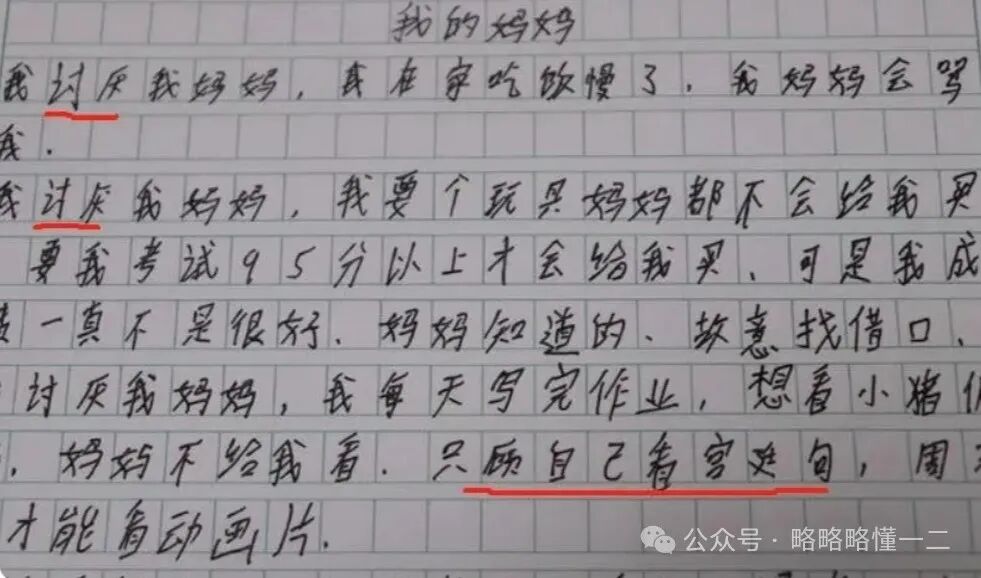 我的妈妈
我讨厌我妈妈，我在家吃饮慢了．我妈妈会骂
我．
我讨厌我妈妈，我要个玩具妈妈都不会给我买
要我考试95分以上才会给我买、可是我成
绩一真不是很好．妈妈知道的、故意找借口、
讨厌我妈妈，我每天写完作业，想看小猪
．妈妈不给我看．只顾自己看宫廷句，周
才能看动画片．
公众号·略略略懂一二